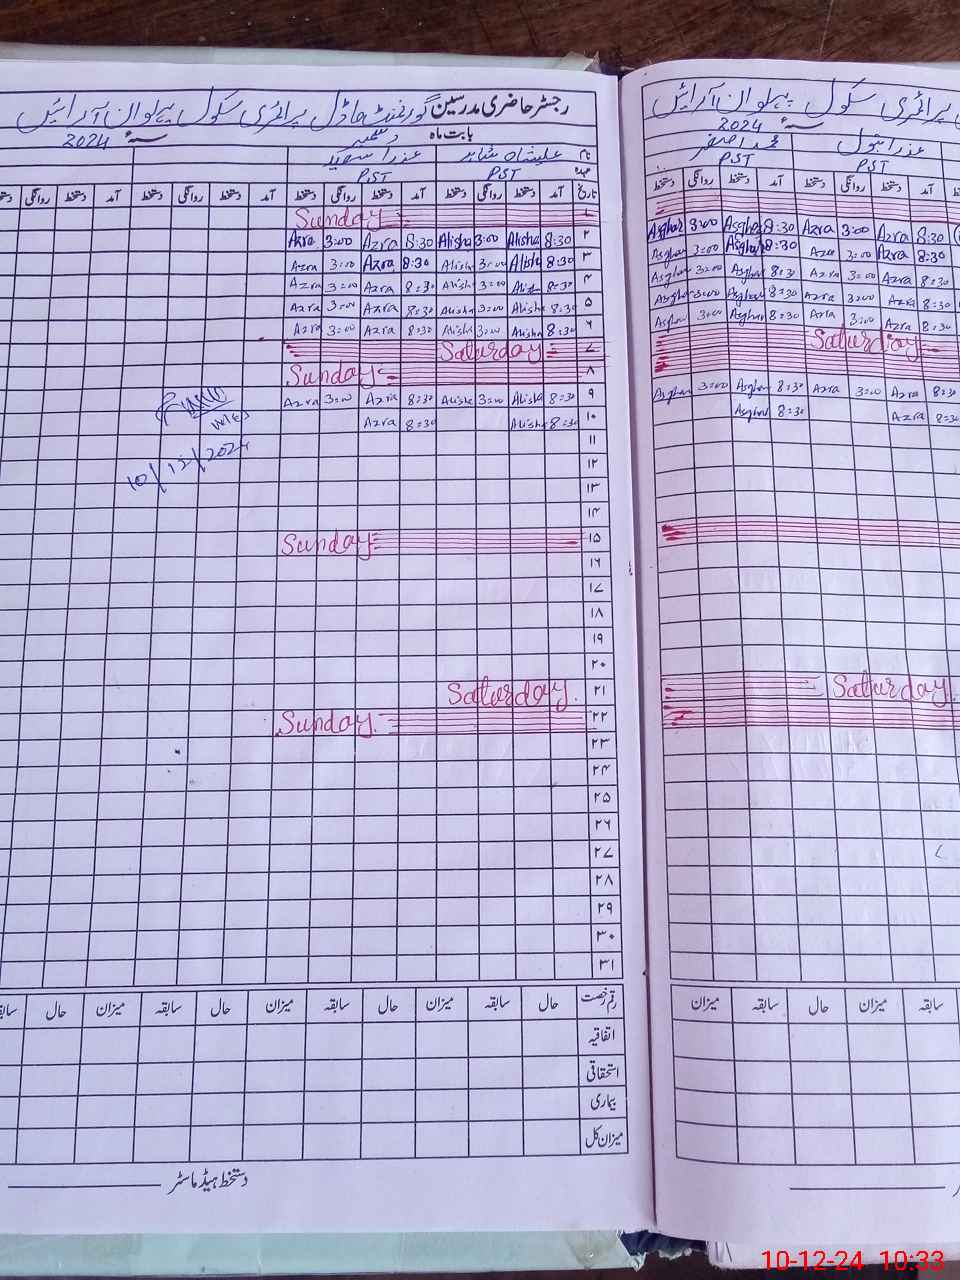 رجسٹر حاضری مدرسین گورنمنٹ ماڈل پرائمری سکول پہلوان آرائیں
بابت ماہ دسمبر سنہ 2024ء
نام علیشاہ شاہد عذرا سعید
عہدہ PST PST
تاریخ آمد دستخط روانگی دستخط آمد دستخط روانگی دستخط آمد دستخط روانگی دستخط آمد دستخط روانگی
۱ Sunday
۲ 8:30 Alisha 3:00 Alisha 8:30 Azra 3:00 Azra
۳ 8:30 Alisha 3:00 Alisha 8:30 Azra 3:00 Azra
۴ 8:30 3:00 Alisha 8:30 Azra 3:00 Azra
۵ 8:30 Alisha 3:00 Alisha 8:30 Azra 3:00 Azra
۶ 8:30 Alisha 3:00 Alisha 8:30 Azra 3:00 Azra
۷ Saturday
۸ Sunday
۹ 8:30 Alisha 3:00 Alisha 8:30 Azra 3:00 Azra
۱۰ 8:30 Alisha 8:30 Azra
10/12/2024
۱۱
۱۲
۱۳
۱۴
۱۵ Sunday
۱۶
۱۷
۱۸
۱۹
۲۰
۲۱ Saturday.
۲۲ Sunday.
۲۳
۲۴
۲۵
۲۶
۲۷
۲۸
۲۹
۳۰
۳۱
رقم رخصت حال سابقہ میزان حال سابقہ میزان حال سابقہ میزان حال
اتفاقیہ
استحقاقی
بیماری
میزان کل
دستخط ہیڈ ماسٹر
پرائمری سکول پہلوان آرائیں
سنہ 2024ء
عذرا بتول محمد اصغر
PST PST
آمد دستخط روانگی دستخط آمد دستخط روانگی دستخط
8:30 Azra 3:00 Azra 8:30 Asghar 3:00 Asghar
8:30 Azra 3:00 Azra 8:30 Asghar 3:00 Asghar
8:30 Azra 3:00 Azra 8:30 Asghar 3:00 Asghar
8:30 Azra 3:00 Azra 8:30 Asghar 3:00 Asghar
8:30 Azra 3:00 Azra 8:30 Asghar 3:00 Asghar
Saturday
8:30 Azra 3:00 Azra 8:30 Asghar 3:00 Asghar
8:30 Azra 8:30 Asghar
Saturday
سابقہ میزان حال سابقہ میزان
10-12-24 10:33